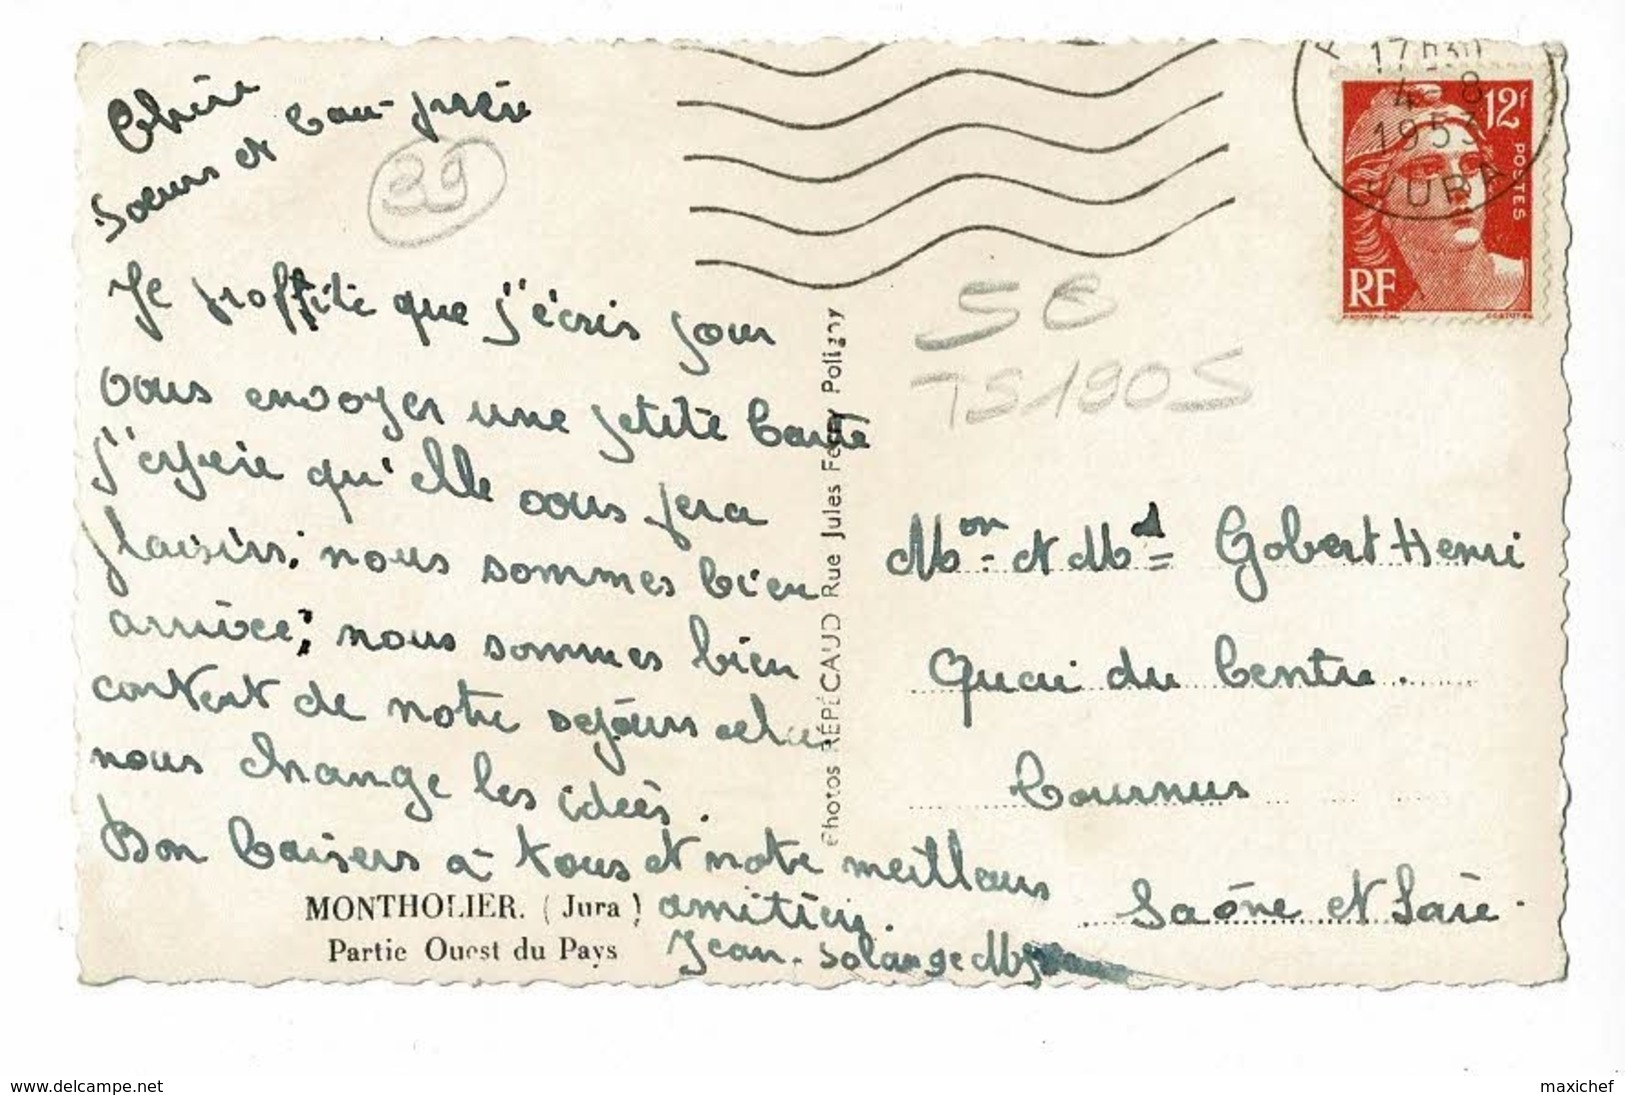 Chère
Soeurs et Beau-frère
39
Je proffite que j'écris pour
vous envoyer une petite Carte
j'espère qu'elle vous fera
plaisirs; nous sommes bien
arrivée; nous sommes bien
content de notre sejours cela
nous change les idées.
Bon Baisers à tous et notre meilleurs
amitiés.
Jean-Solange
MONTHOLIER. (Jura)
Partie Ouest du Pays
Photos RÉPÉCAUD Rue Jules Ferry Poligny
17H30
4-8
1953
JURA
12F
POSTES
RF
58
TS1905
Mon. et Md Gobert Henri
Quai du Centre.
Tournus
Saône et Loire.
www.delcampe.net
maxichef